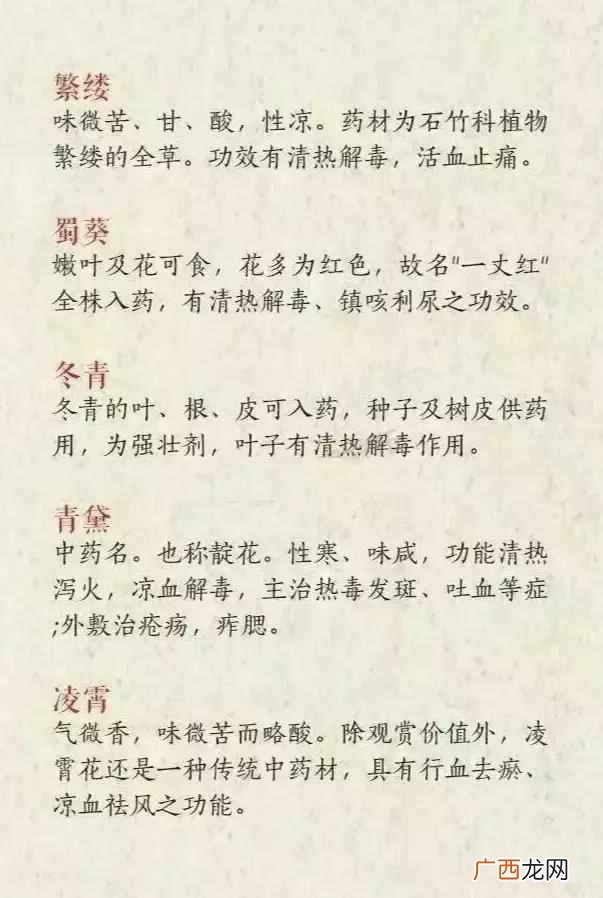 繁缕
味微苦、甘、酸，性凉。药材为石竹科植物
繁缕的全草。功效有清热解毒，活血止痛。
蜀葵
嫩叶及花可食，花多为红色，故名"一丈红"
全株入药，有清热解毒、镇咳利尿之功效。
冬青
冬青的叶、根、皮可入药，种子及树皮供药
用，为强壮剂，叶子有清热解毒作用。
青黛
中药名。也称靛花。性寒、味咸，功能清热
泻火，凉血解毒，主治热毒发斑、吐血等症
;外敷治疮疡，痄腮。
凌霄
气微香，味微苦而略酸。除观赏价值外，凌
霄花还是一种传统中药材，具有行血去瘀、
凉血祛风之功能。
广西龙网